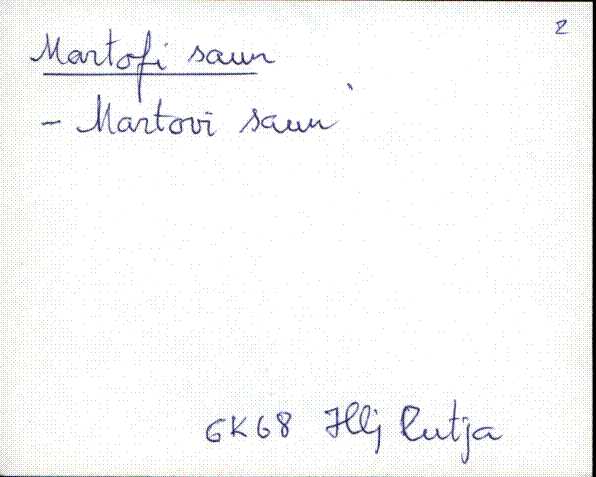 2
Martofi saun
- Martovi saun`
GK68 Hlj Rutja